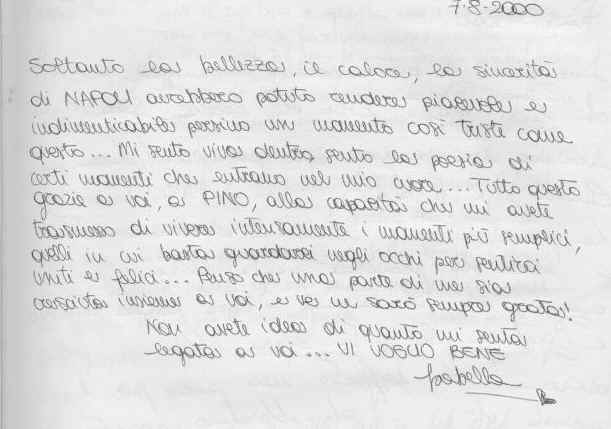 7.8.2000
Soltanto la bellezza, il calore, la sincerità
di NAPOLI avrebbero potuto rendere piacevole e
indimenticabile persino un momento così triste come
questo... Mi sento viva dentro, sento la poesia di
certi momenti che entrano nel mio cuore... Tutto questo
grazie a voi, a PINO, alla capacità che mi avete
trasmesso di vivere intensamente i momenti più semplici,
quelli in cui basta guardarsi negli occhi per sentirsi
uniti e felici... Penso che una parte di me sia
cresciuta insieme a voi, e ve ne sarò sempre grata!
Non avete idea di quanto mi senta
legata a voi... VI VOGLIO BENE
Isabella